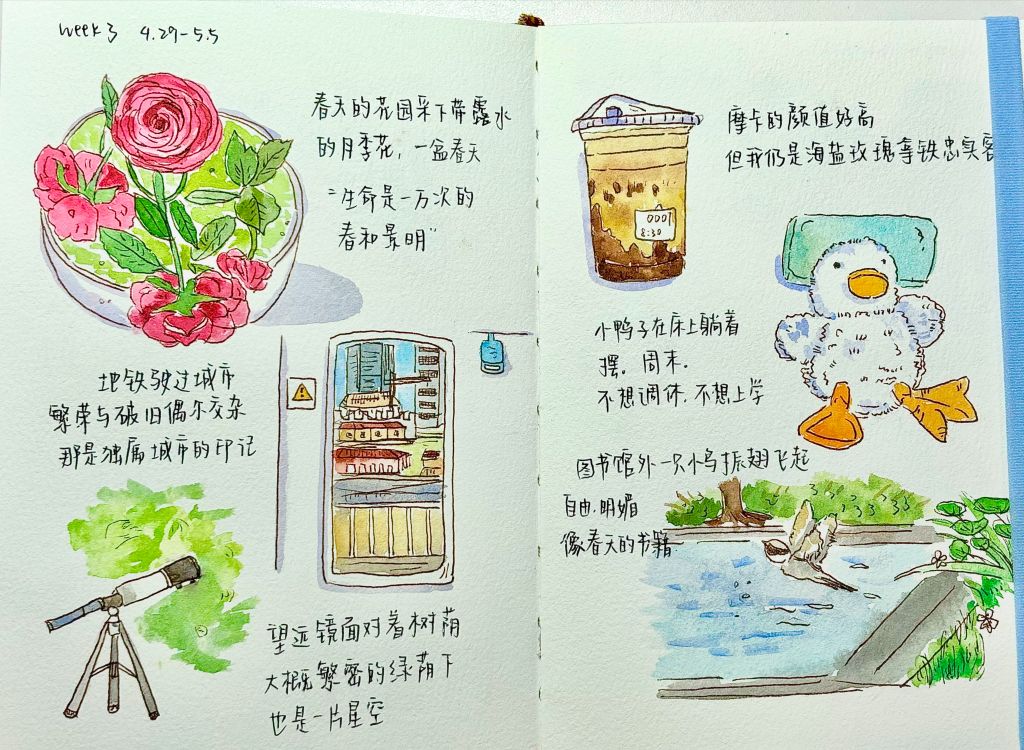 week 3 4.29-5.5
春天的花园采下带露水
的月季花，一盆春天
“生命是一万次的
春和景明”
地铁驶过城市
繁荣与破旧偶尔交杂
那是独属城市的印记
望远镜面对着树荫
大概繁密的绿荫下
也是一片星空
摩卡的颜值好高
但我仍是海盐玫瑰拿铁忠实客
0001
8:30
小鸭子在床上躺着
摆．周末．
不想调休．不想上学
图书馆外一只小鸟振翅飞起
自由．明媚
像春天的书籍